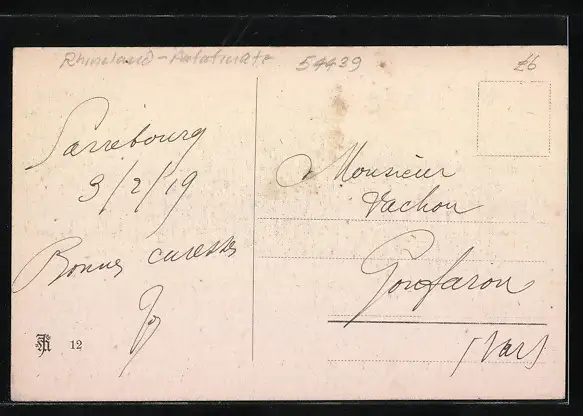 Rhineland-Palatinate 54439 £6
Sarrebourg
3/2/19
Bonnes caresses
Monsieur
Vachon
Gonfaron
(Var)
12